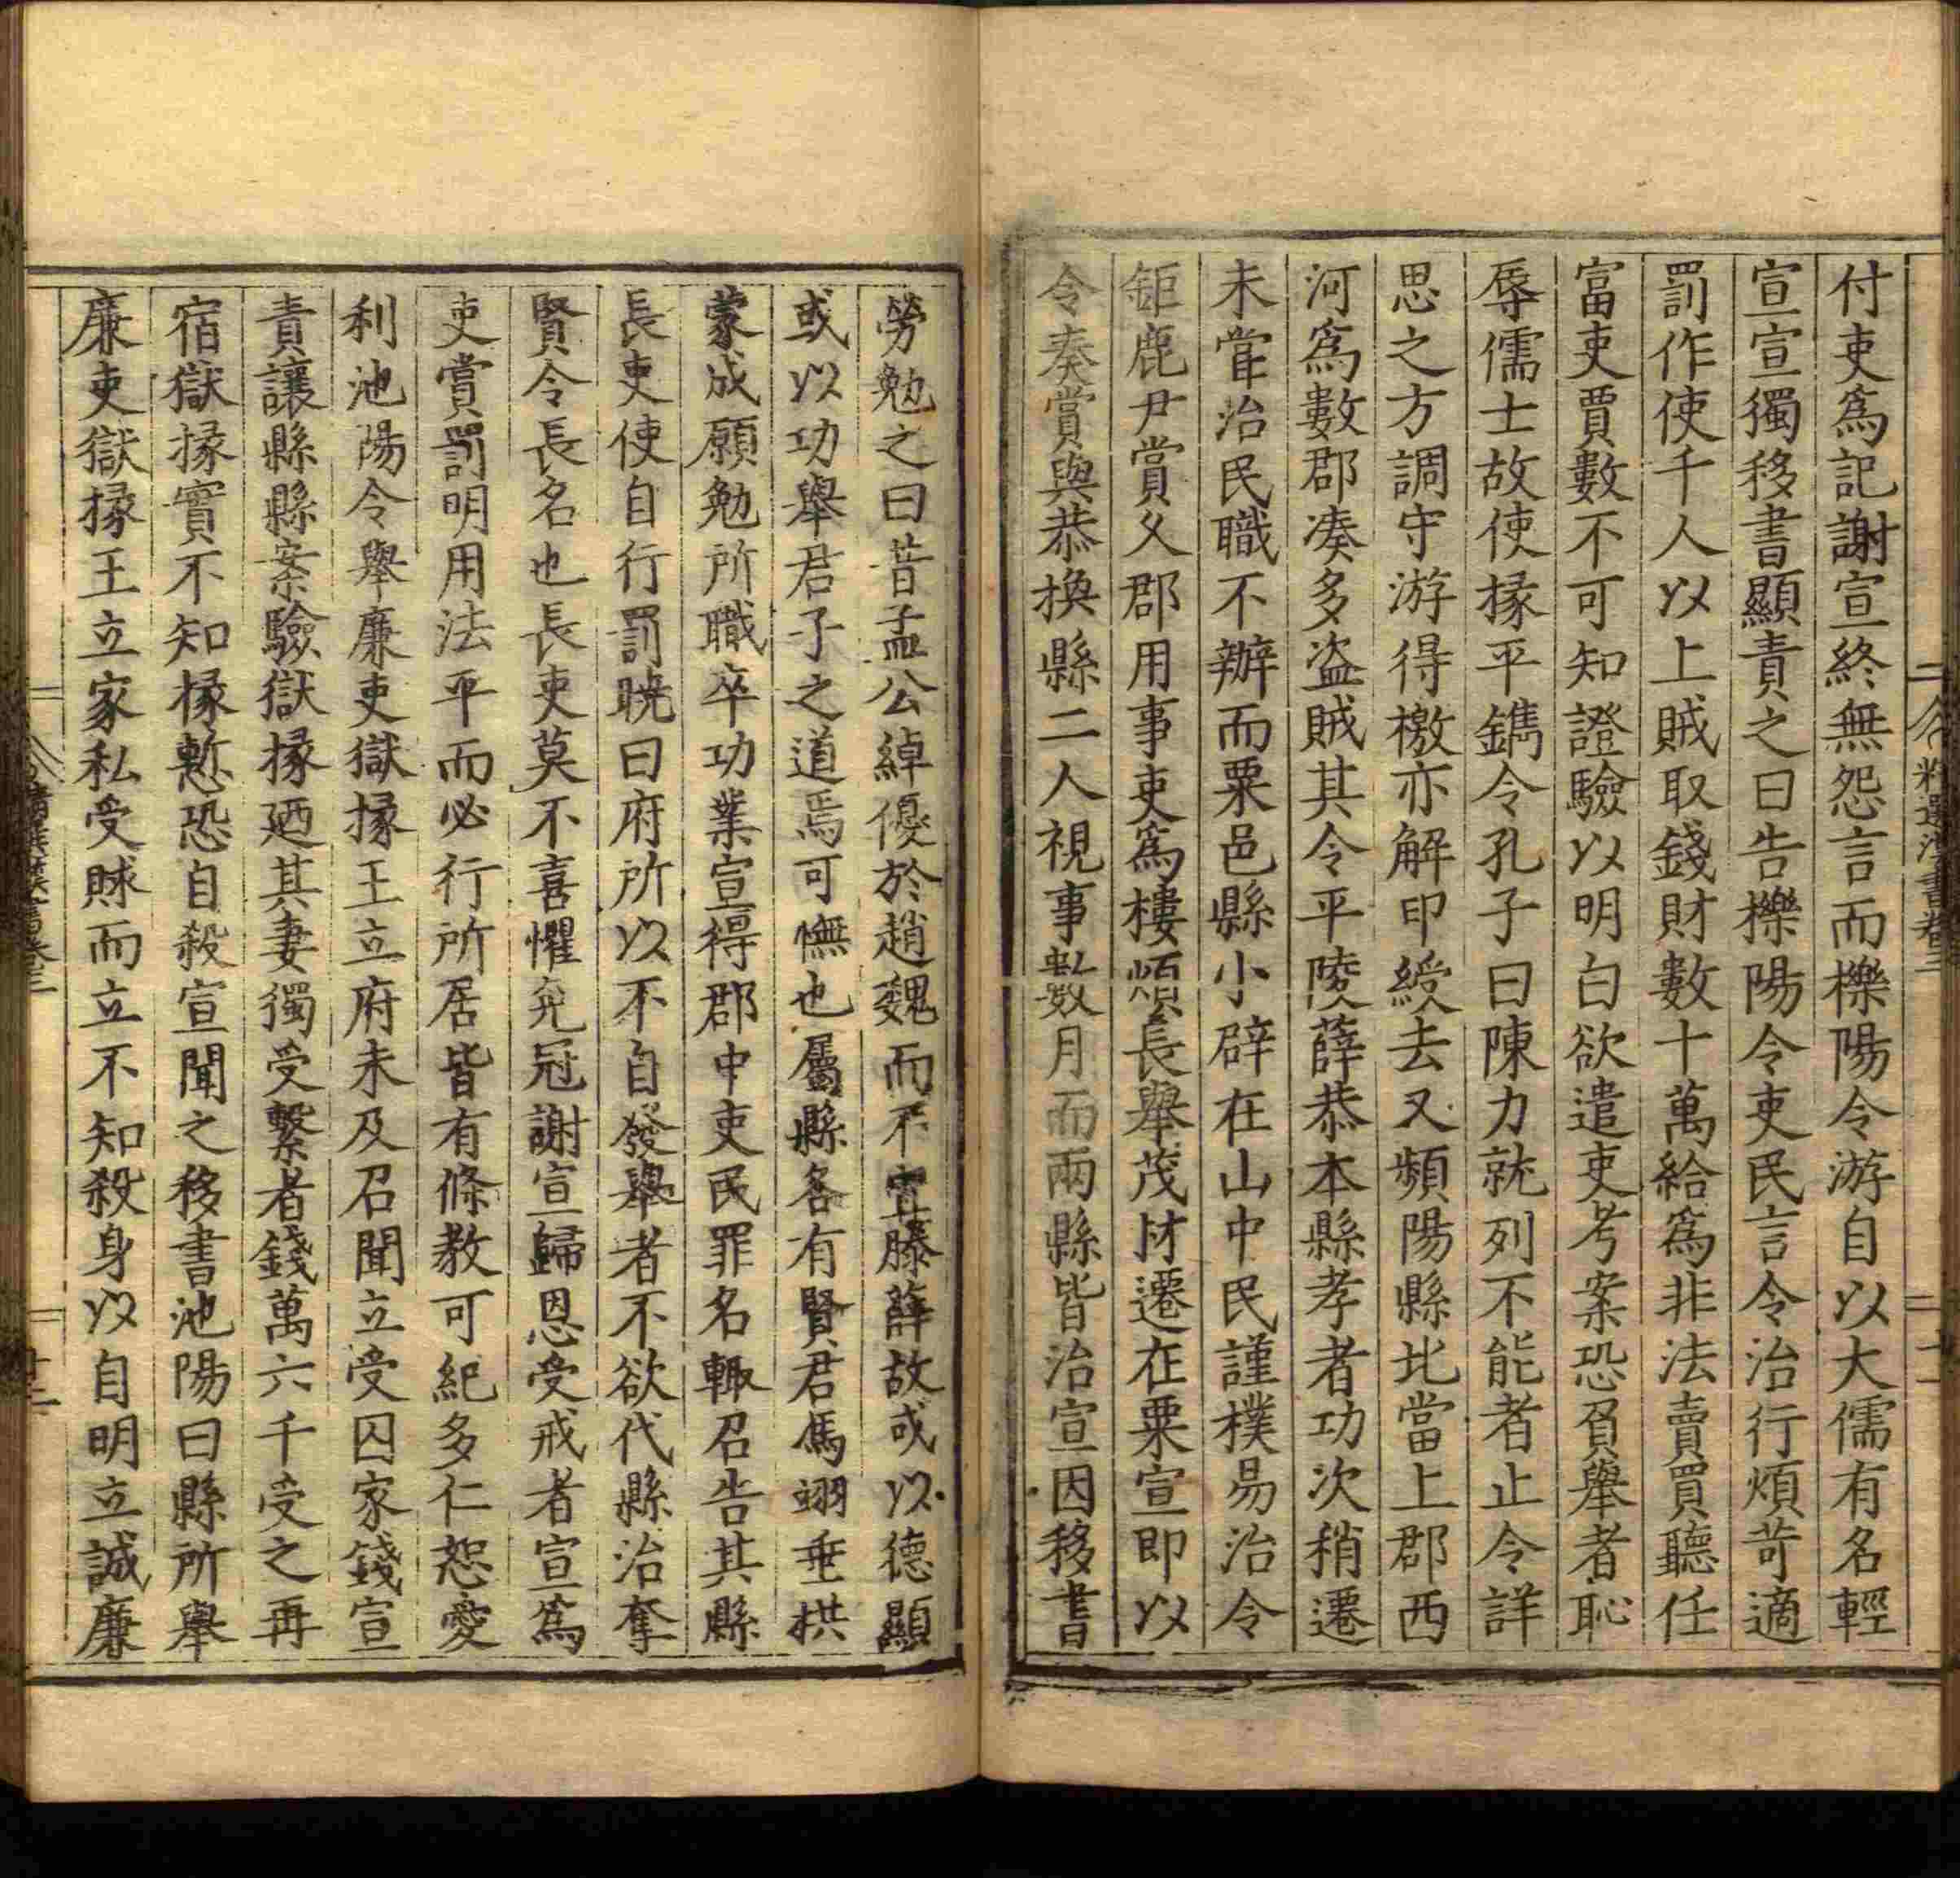 付吏爲記謝宣終無怨言而櫟陽令游自以大儒有名輕
宣宣獨移書顯責之曰告櫟陽令吏民言令治行煩苛適
罰作使千人以上賊取錢財數十萬給爲非法賣買聽任
富吏賈數不可知證驗以明白欲遣吏考案恐負舉者恥
辱儒士故使掾平鐫令孔子曰陳力就列不能者止令詳
思之方調守游得檄亦解印綬去又頻陽縣北當上郡西
河爲數郡湊多盗賊其令平陵薛恭本縣孝者功次稍遷
未甞治民職不辦而粟邑縣小辟在山中民謹樸易治令
鉅鹿尹賞乆郡用事吏爲樓煩長舉茂材遷在粟宣即以
令奏賞與恭換縣二人視事數月而兩縣皆治宣因移書
勞勉之曰昔孟公綽優於趙魏而不宜滕薛故或以德顯
或以功舉君子之道焉可憮也屬縣各有賢君馮翊垂拱
蒙成願勉所職卒功業宣得郡中吏民罪名輙召告其縣
長吏使自行罰曉曰府所以不自發舉者不欲代縣治奪
賢令長名也長吏莫不喜懼免冠謝宣歸恩受戒者宣爲
吏賞罰明用法平而必行所居皆有條教可紀多仁恕愛
利池陽令舉廉吏獄掾王立府未及召聞立受囚家錢宣
責讓縣縣案驗獄掾廼其妻獨受繫者錢萬六千受之再
宿獄掾實不知掾慙恐自殺宣聞之移書池陽曰縣所舉
廉吏獄掾王立家私受賕而立不知殺身以自明立誠廉
精選漢書卷三